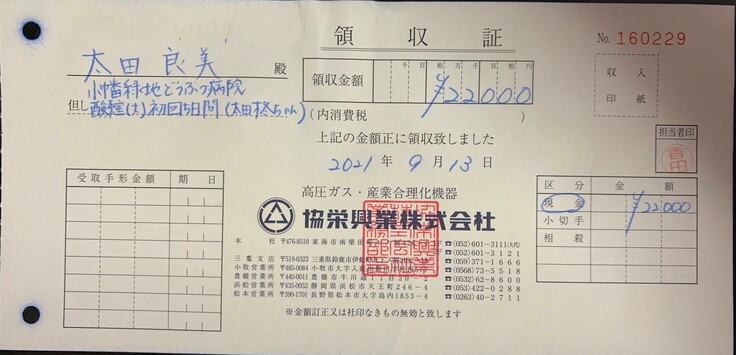 領収証
No. 160229
太田良美 殿
領収金額 千百拾万千百拾円
¥22000
収入
印紙
小幡緑地どうぶつ病院
但し 酸素室(大)初回5日間(太田柊ちゃん)
(内消費税 )
上記の金額正に領収致しました
2021年9月13日
担当者印
受取手形金額 期日
区分 金額
現金 ¥22000
小切手
相殺
高圧ガス・産業合理化機器
協栄興業株式会社
本社 〒476-8510 東海市南柴田町
☎(052)601-3111(大代)
(052)601-3121
三重支店 〒519-0323 三重県鈴鹿市伊船町
☎(059)371-1666
小牧営業所 〒485-0084 小牧市大字入鹿
☎(0568)73-5518
豊橋営業所 〒440-0011 豊橋市牛川通 20
☎(0532)62-8600
浜松営業所 〒435-0052 静岡県浜松市天王町246-4
☎(053)422-0288
松本営業所 〒390-1701 長野県松本市大字島内1853-4
☎(0263)40-2711
※金額訂正又は社印なきもの無効と致します